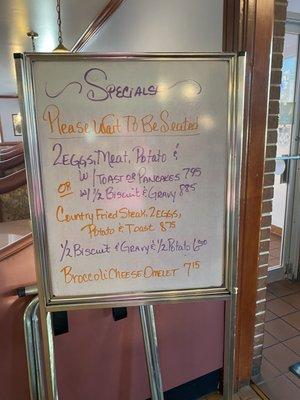 Specials
Please Wait To Be Seated
2 Eggs, Meat, Potato &
w/ Toast or Pancakes 7.95
or w/ 1/2 Biscuit & Gravy 8.85
Country Fried Steak, 2 Eggs,
Potato & Toast 8.75
1/2 Biscuit & Gravy & 1/2 Potato 6.00
Broccoli Cheese Omelet 7.15